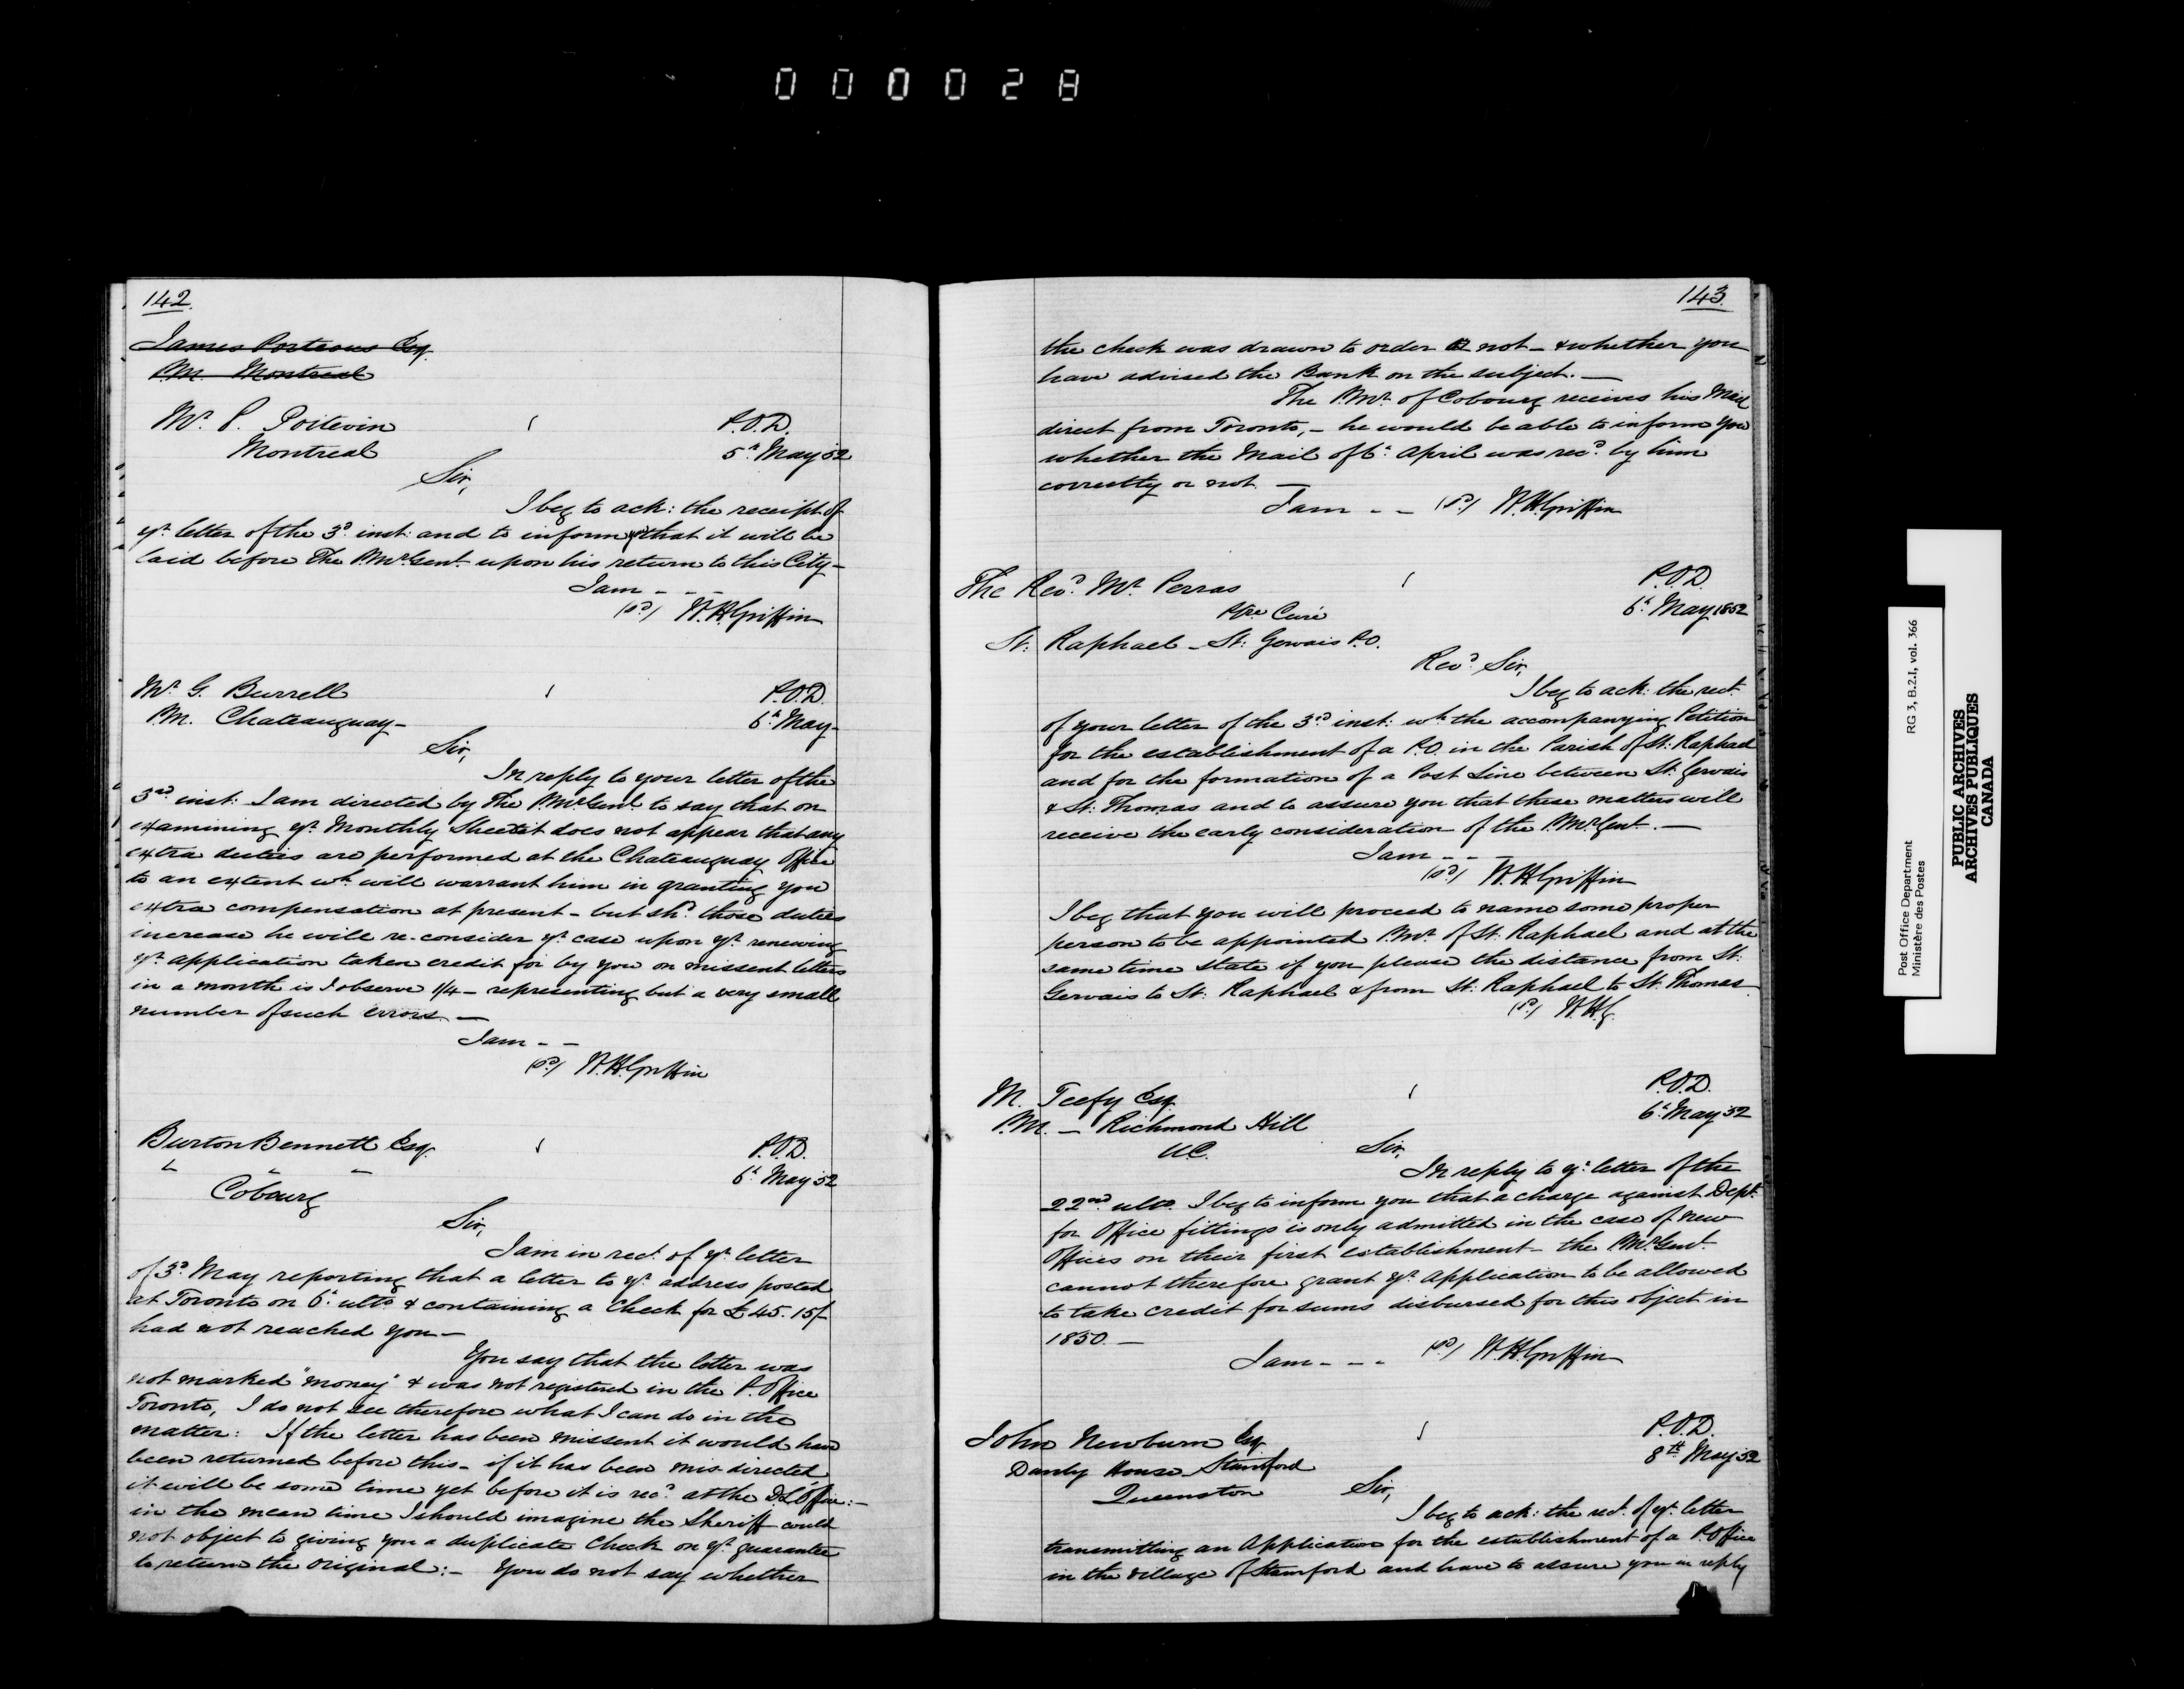 000028
142.
James Porteous Esq.
P.M. Montreal
Mr. P. Poitevin
Montreal
P.O.D.
5th May 52
Sir,
I beg to ack: the receipt of
yr. letter of the 3d. inst: and to inform you that it will be
laid before The P.Mr. Genl. upon his return to this City—
I am - - -
(sd.) W.H. Griffin
Mr. G. Burrell
P.M. Chateauguay—
P.O.D.
6th May—
Sir,
In reply to your letter of the
3rd inst: I am directed by The P.Mr. Genl. to say that on
examining yr. Monthly Sheet it does not appear that any
extra duties are performed at the Chateauguay Office
to an extent wh. will warrant him in granting you
extra compensation at present - but shd. those duties
increase he will re-consider yr. case upon yr. renewing
yr. application taken credit for by you on missent letters
in a month is I observe 1/4 - representing but a very small
number of such errors. —
I am - -
(sd.) W.H. Griffin
Burton Bennett Esq.
Cobourg
P.O.D.
6th May 52
Sir,
I am in rect. of yr. letter
of 3d. May reporting that a letter to yr. address posted
at Toronto on 6th ulto. & containing a Check for £45.15/-
had not reached you—
You say that the letter was
not marked "money" & was not registered in the P. Office
Toronto, I do not see therefore what I can do in the
matter: If the letter has been missent it would have
been returned before this - if it has been mis-directed
it will be some time yet before it is recd. at the D.L. Office: -
in the mean time I should imagine the Sheriff could
not object to giving you a duplicate Check on yr. guarantee
to return the original: - You do not say whether
143.
the check was drawn to order or not - & whether you
have advised the Bank on the subject. —
The P.Mr. of Cobourg receives his Mail
direct from Toronto, - he would be able to inform you
whether the Mail of 6th April was recd. by him
correctly or not. —
I am - - (sd.) W.H. Griffin
The Revd. Mr. Perras
Ptre Curé
St: Raphael - St: Gervais P.O.
P.O.D.
6th May 1852
Revd. Sir,
I beg to ack: the rect.
of your letter of the 3rd inst: wh. the accompanying Petition
for the establishment of a P.O. in the Parish of St: Raphael
and for the formation of a Post Line between St: Gervais
& St: Thomas and to assure you that these matters will
receive the early consideration of the P.Mr. Genl. —
I am - -
(sd.) W.H. Griffin
I beg that you will proceed to name some proper
person to be appointed P.Mr. of St: Raphael and at the
same time state if you please the distance from St:
Gervais to St: Raphael & from St: Raphael to St. Thomas
(sd.) W.H.G.
M. Teefy Esq.
P.M. — Richmond Hill
U.C.
P.O.D.
6th May 52
Sir,
In reply to yr. letter of the
22nd ulto. I beg to inform you that a charge against Dept.
for Office fittings is only admitted in the case of new
Offices on their first establishment - the P.Mr. Genl.
cannot therefore grant yr. application to be allowed
to take credit for sums disbursed for this object in
1850. —
I am - - - (sd.) W.H. Griffin
John Newburn Esq.
Danby House Stamford
Queenston
P.O.D.
8th May 52
Sir,
I beg to ack: the rect. of yr. letter
transmitting an Application for the establishment of a P. Office
in the village of Stamford and have to assure you in reply
Post Office Department RG 3, B.2.I, vol. 366
Ministère des Postes
PUBLIC ARCHIVES
ARCHIVES PUBLIQUES
CANADA